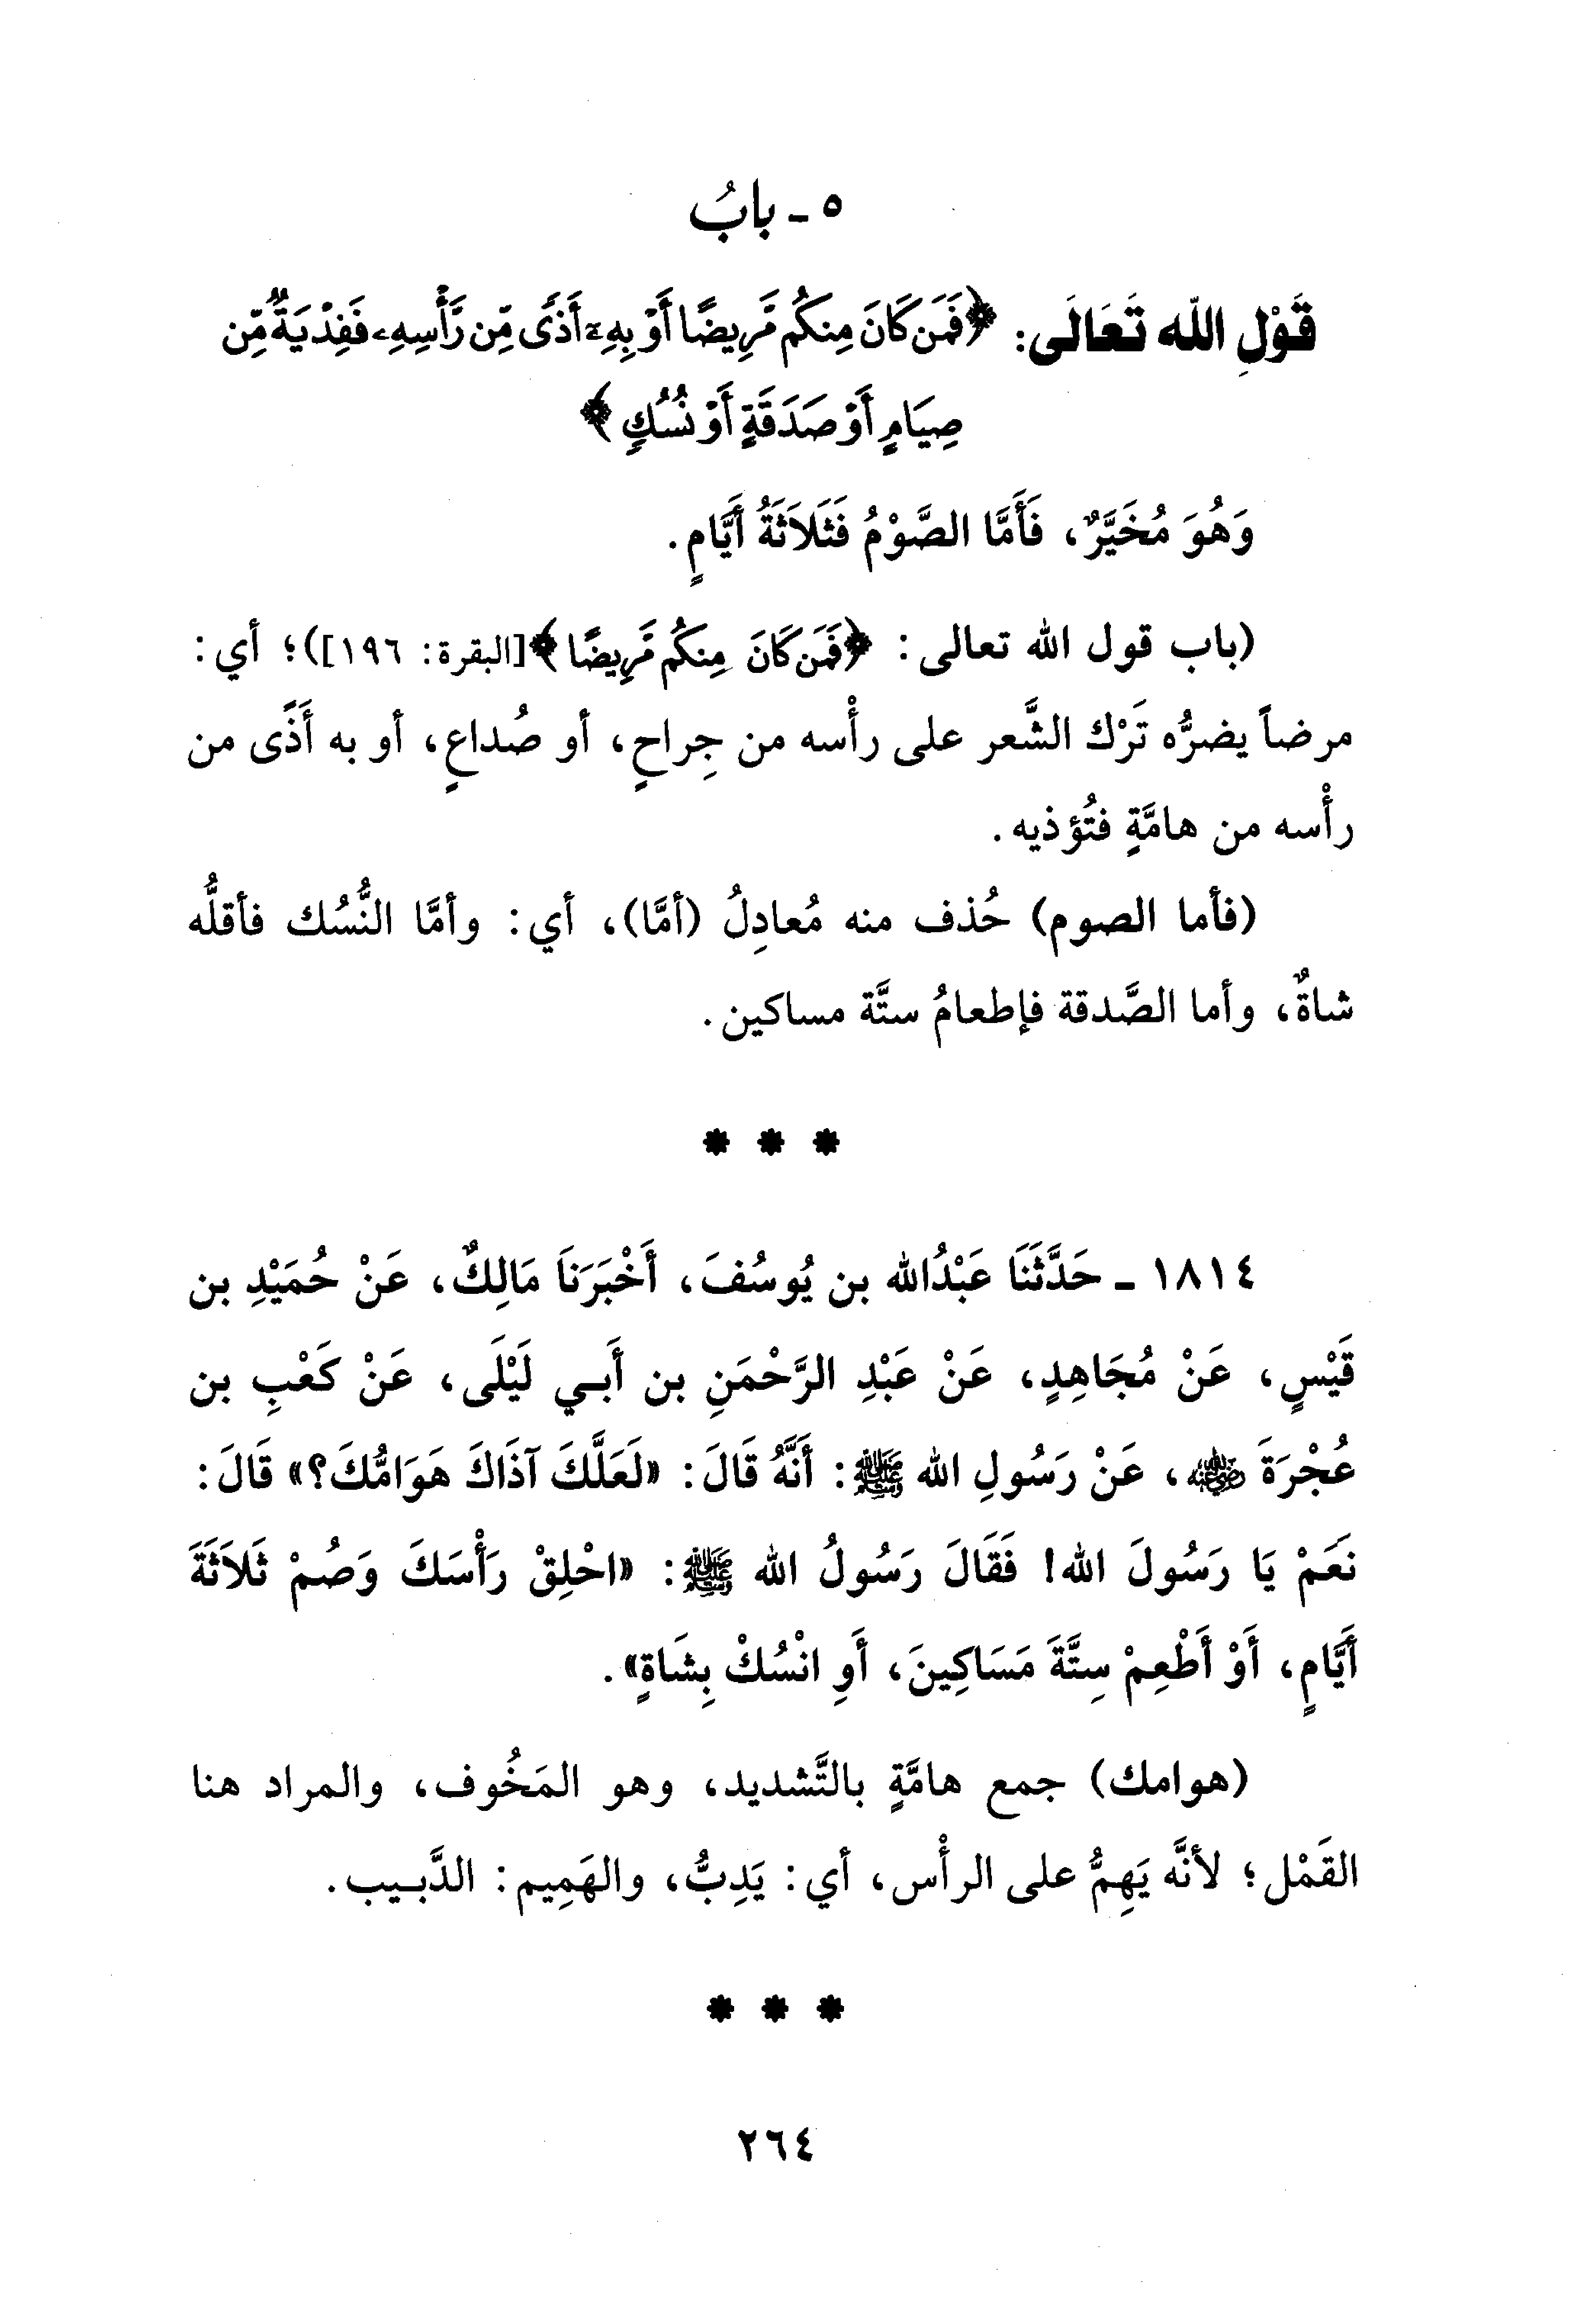 ٥ - بابُ
قَوْلِ اللَّه تَعَالَى: ﴿فَمَن كَانَ مِنكُم مَّرِيضًا أَوْ بِهِۦٓ أَذًى مِّن رَّأْسِهِۦ فَفِدْيَةٌ مِّن
صِيَامٍ أَوْ صَدَقَةٍ أَوْ نُسُكٍ﴾
وَهُوَ مُخَيَّرٌ، فَأَمَّا الصَّوْمُ فَثَلَاثَةُ أَيَّامٍ.
(باب قول الله تعالى: ﴿فَمَن كَانَ مِنكُم مَّرِيضًا﴾[البقرة: ١٩٦])؛ أي:
مرضاً يضرُّه تَرْك الشَّعر على رأْسه من جِراحٍ، أو صُداعٍ، أو به أَذًى من
رأْسه من هامَّةٍ فتُؤذيه.
(فأما الصوم) حُذف منه مُعادِلُ (أمَّا)، أي: وأمَّا النُّسُك فأقلُّه
شاةٌ، وأما الصَّدقة فإطعامُ ستَّة مساكين.
* * *
١٨١٤ - حَدَّثَنَا عَبْدُالله بن يُوسُفَ، أَخْبَرَنَا مَالِكٌ، عَنْ حُمَيْدِ بن
قَيْسٍ، عَنْ مُجَاهِدٍ، عَنْ عَبْدِ الرَّحْمَنِ بن أَبي لَيْلَى، عَنْ كَعْبِ بن
عُجْرَةَ رضي الله عنه، عَنْ رَسُولِ الله ﷺ: أَنَّهُ قَالَ: «لَعَلَّكَ آذَاكَ هَوَامُّكَ؟» قَالَ:
نَعَمْ يَا رَسُولَ الله! فَقَالَ رَسُولُ الله ﷺ: «احْلِقْ رَأْسَكَ وَصُمْ ثَلَاثَةَ
أَيَّامٍ، أَوْ أَطْعِمْ سِتَّةَ مَسَاكِينَ، أَوِ انْسُكْ بِشَاةٍ».
(هوامك) جمع هامَّةٍ بالتَّشديد، وهو المَخُوف، والمراد هنا
القَمْل؛ لأنَّه يَهِمُّ على الرأْس، أي: يَدِبُّ، والهَمِيم: الدَّبيب.
* * *
٢٦٤